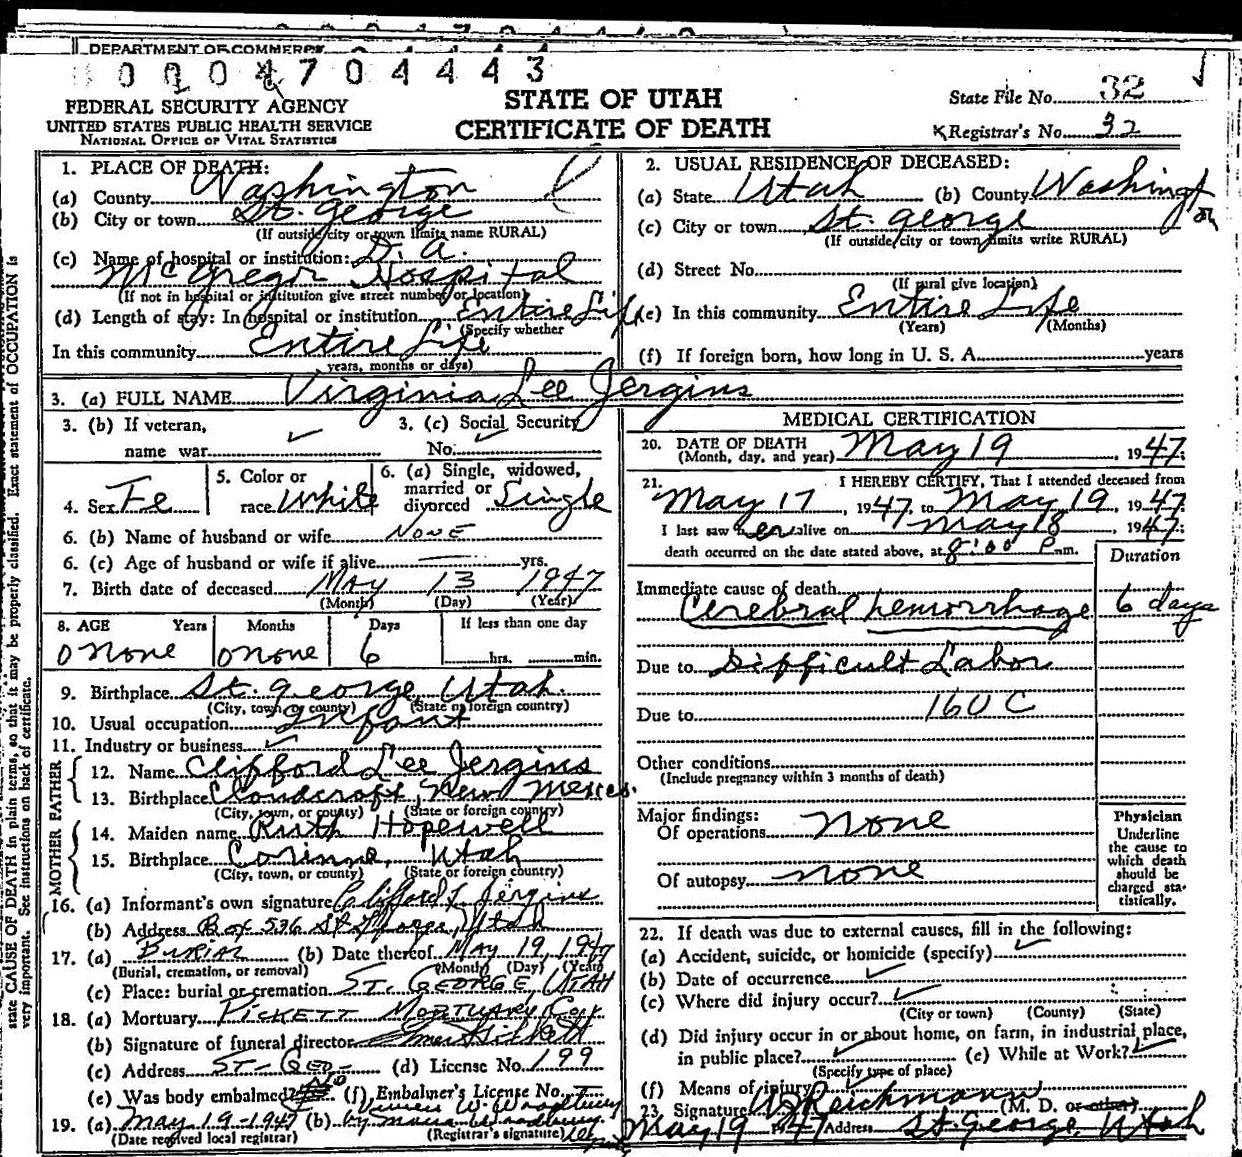 DEPARTMENT OF COMMERCE
0 0 0 4 7 0 4 4 4 3
FEDERAL SECURITY AGENCY
UNITED STATES PUBLIC HEALTH SERVICE
NATIONAL OFFICE OF VITAL STATISTICS
STATE OF UTAH
CERTIFICATE OF DEATH
State File No. 32
Registrar's No. 32
1. PLACE OF DEATH:
(a) County Washington
(b) City or town St. George
(If outside city or town limits name RURAL)
(c) Name of hospital or institution: D. A.
McGregor Hospital
(If not in hospital or institution give street number or location)
(d) Length of stay: In hospital or institution Entire Life
(Specify whether
In this community Entire Life
years, months or days)
2. USUAL RESIDENCE OF DECEASED:
(a) State Utah (b) County Washington
(c) City or town St. George
(If outside city or town limits write RURAL)
(d) Street No.
(If rural give location)
(e) In this community Entire Life
(Years) (Months)
(f) If foreign born, how long in U. S. A. years
3. (a) FULL NAME Virginia Lee Jergins
3. (b) If veteran,
name war
3. (c) Social Security
No.
4. Sex Fe
5. Color or
race White
6. (a) Single, widowed,
married or
divorced Single
6. (b) Name of husband or wife NONE
6. (c) Age of husband or wife if alive yrs.
7. Birth date of deceased MAY 13 1947
(Month) (Day) (Year)
8. AGE Years Months Days If less than one day
0 None 0 None 6 hrs. min.
9. Birthplace St. George Utah.
(City, town or county) (State or foreign country)
10. Usual occupation Infant
11. Industry or business
FATHER
12. Name Clifford Lee Jergins
13. Birthplace Cloudcroft, New Mexico.
(City, town, or county) (State or foreign country)
MOTHER
14. Maiden name Ruth Hopewell
15. Birthplace Corinne, Utah
(City, town, or county) (State or foreign country)
16. (a) Informant's own signature Clifford L. Jergins
(b) Address Box 536 St George, Utah
17. (a) BURIAL (b) Date thereof MAY 19, 1947
(Burial, cremation, or removal) (Month) (Day) (Year)
(c) Place: burial or cremation ST. GEORGE, UTAH
18. (a) Mortuary PICKETT MORTUARY
(b) Signature of funeral director
(c) Address ST-GEO- (d) License No. 199
(e) Was body embalmed? No (f) Embalmer's License No.
19. (a) May-19-1947 (b) W. Woodbury
(Date received local registrar) (Registrar's signature)
MEDICAL CERTIFICATION
20. DATE OF DEATH
(Month, day, and year) May 19, 1947.
21. I HEREBY CERTIFY, That I attended deceased from
May 17, 1947, to May 19, 1947.
I last saw her alive on May 18, 1947:
death occurred on the date stated above, at 8:00 P.m.
Duration
Immediate cause of death
Cerebral hemorrhage 6 days
Due to Difficult Labor
Due to 160 C
Other conditions
(Include pregnancy within 3 months of death)
Major findings:
Of operations none
Of autopsy none
Physician
Underline
the cause to
which death
should be
charged sta-
tistically.
22. If death was due to external causes, fill in the following:
(a) Accident, suicide, or homicide (specify)
(b) Date of occurrence
(c) Where did injury occur?
(City or town) (County) (State)
(d) Did injury occur in or about home, on farm, in industrial place,
in public place? (e) While at Work?
(Specify type of place)
(f) Means of injury
23. Signature Reichmann (M. D. or other)
May 19 1947 Address St. George, Utah
state CAUSE OF DEATH in plain terms, so that it may be properly classified. Exact statement of OCCUPATION is
very important. See instructions on back of certificate.